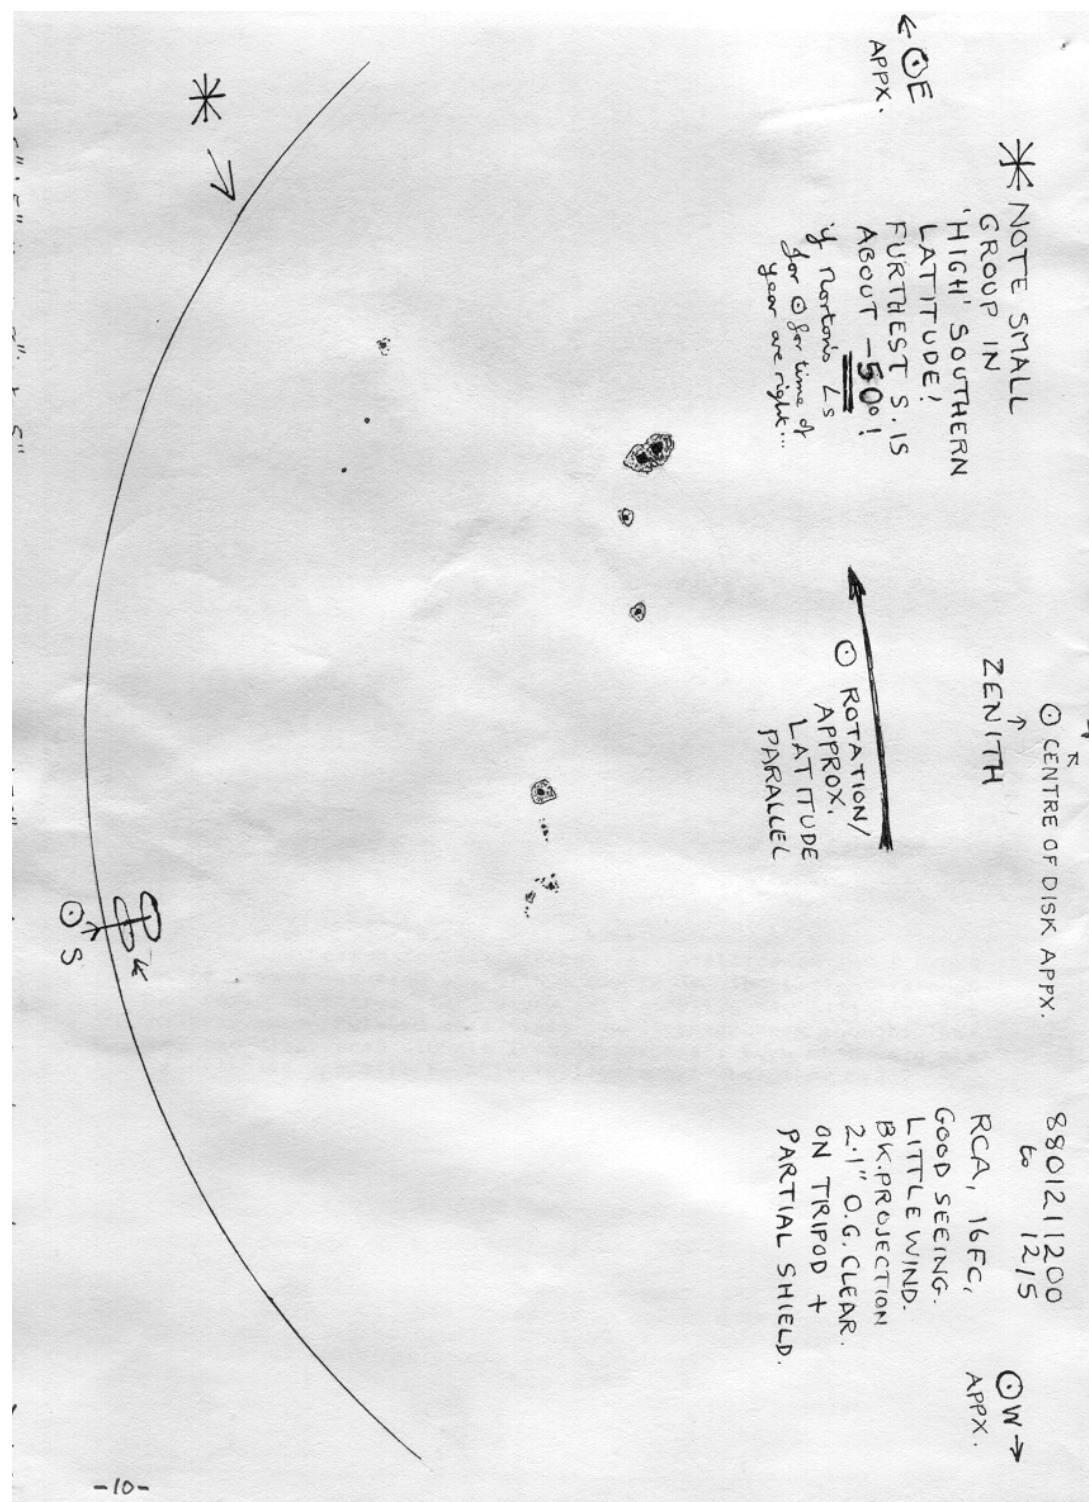 ← ⊙E
APPX.
* NOTE SMALL
GROUP IN
'HIGH' SOUTHERN
LATITUDE!
FURTHEST S. IS
ABOUT -50°!
if Norton's ∠s
for ⊙ for time of
year are right...
⊙ CENTRE OF DISK APPX.
ZENITH
⊙ ROTATION/
APPROX.
LATITUDE
PARALLEL
8801211200
to 1215
RCA, 16EC,
GOOD SEEING.
LITTLE WIND.
BK.PROJECTION
2.1" O.G. CLEAR.
ON TRIPOD +
PARTIAL SHIELD.
⊙W →
APPX.
*
⊙ S
-10-